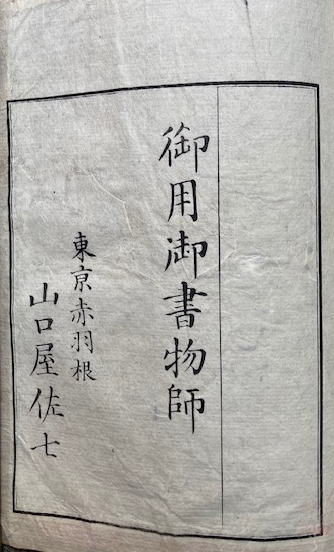 御用御書物師
東亰赤羽根
山口屋佐七